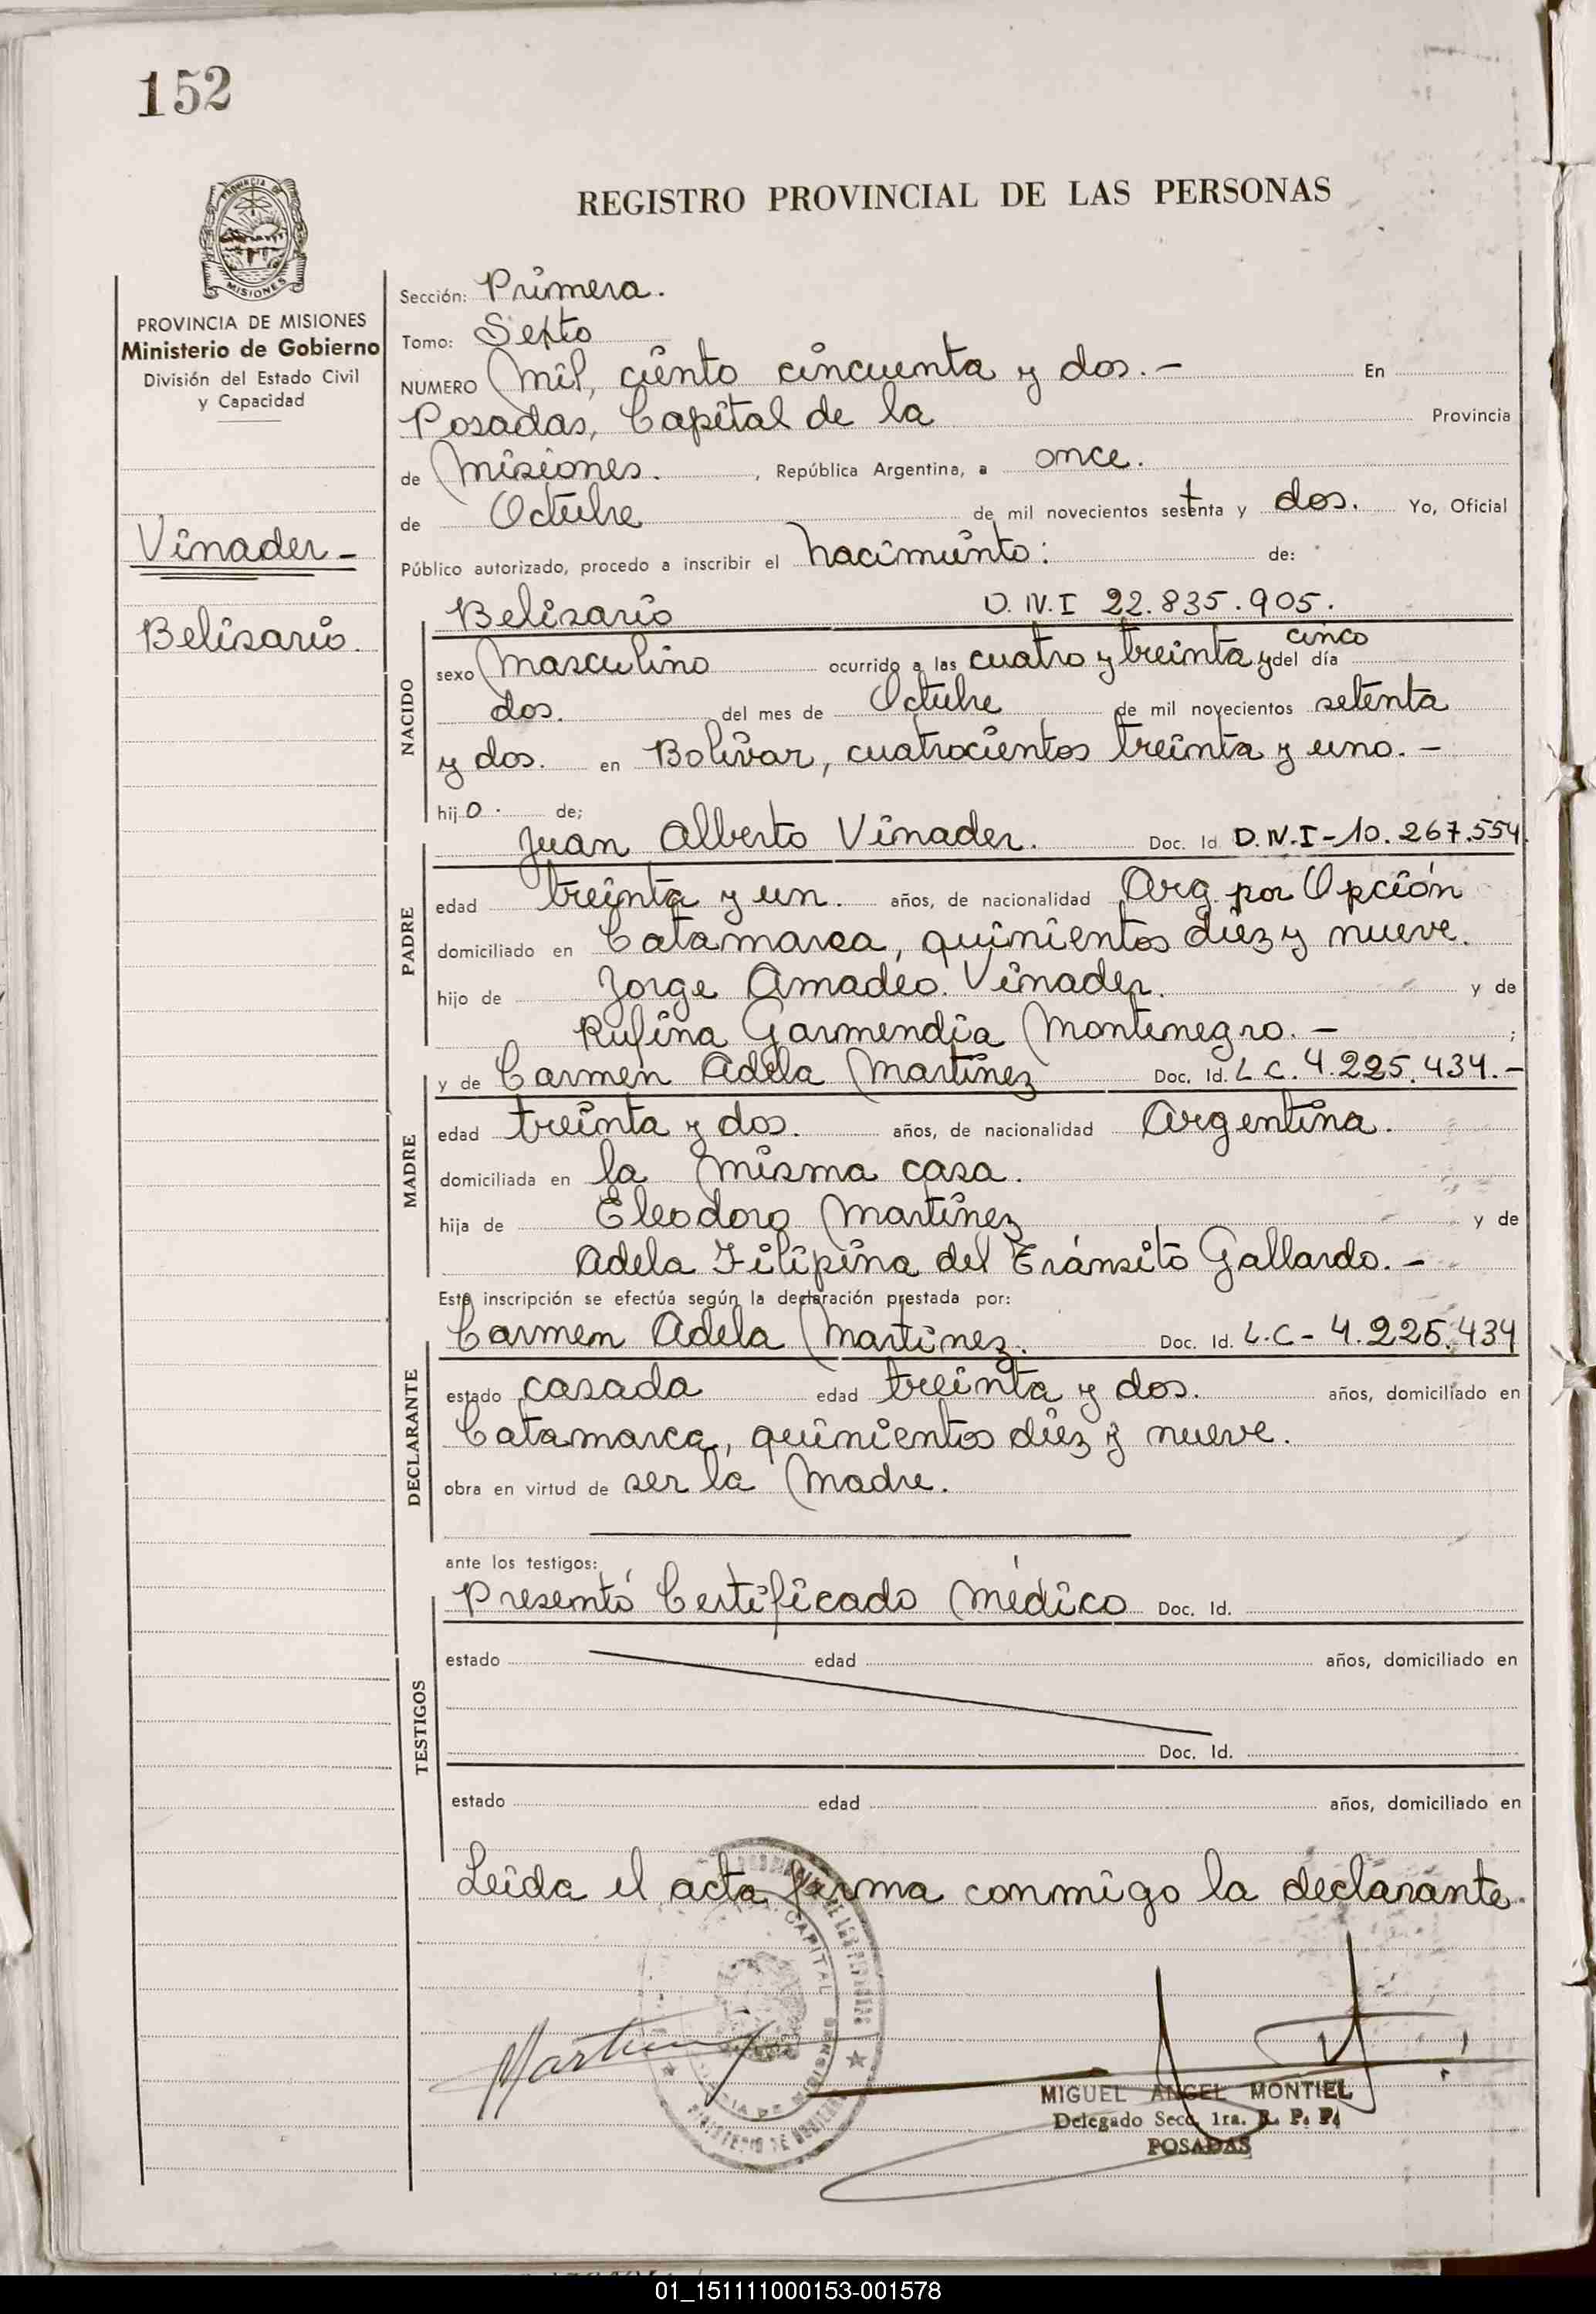 152
REGISTRO PROVINCIAL DE LAS PERSONAS
PROVINCIA DE
MISIONES
PROVINCIA DE MISIONES
Ministerio de Gobierno
División del Estado Civil
y Capacidad
Vinader -
Belisario.
Sección: Primera.
Tomo: Sexto
NUMERO Mil, ciento cincuenta y dos. - En
Posadas, Capital de la Provincia
de Misiones. , República Argentina, a once.
de Octubre de mil novecientos setenta y dos. Yo, Oficial
Público autorizado, procedo a inscribir el Nacimiento: de:
NACIDO
Belisario D.N.I 22.835.905.
sexo Masculino ocurrido a las cuatro y treinta y cinco del día
dos. del mes de Octubre de mil novecientos setenta
y dos. en Bolívar, cuatrocientos treinta y uno. -
hijo. de;
PADRE
Juan Alberto Vinader. Doc. Id. D.N.I - 10.267.554.
edad treinta y un. años, de nacionalidad Arg. por Opción
domiciliado en Catamarca, quinientos diez y nueve.
hijo de Jorge Amadeo Vinader. y de
Rufina Garmendia Montenegro. - ;
MADRE
y de Carmen Adela Martínez Doc. Id. L.C. 4.225.434. -
edad treinta y dos. años, de nacionalidad Argentina.
domiciliada en la misma casa.
hija de Eleodoro Martínez y de
Adela Filipina del Tránsito Gallardo. -
Esta inscripción se efectúa según la declaración prestada por:
DECLARANTE
Carmen Adela Martínez. Doc. Id. L.C - 4.225.434
estado casada edad treinta y dos. años, domiciliado en
Catamarca, quinientos diez y nueve.
obra en virtud de ser la Madre.
ante los testigos:
TESTIGOS
Presentó Certificado Médico Doc. Id.
estado edad años, domiciliado en
Doc. Id.
estado edad años, domiciliado en
Leida el acta firma conmigo la declarante.
CAPITAL
MINISTERIO DE GOBIERNO
MIGUEL ANGEL MONTIEL
Delegado Secc. 1ra. R. P. P.
POSADAS
01_151111000153-001578